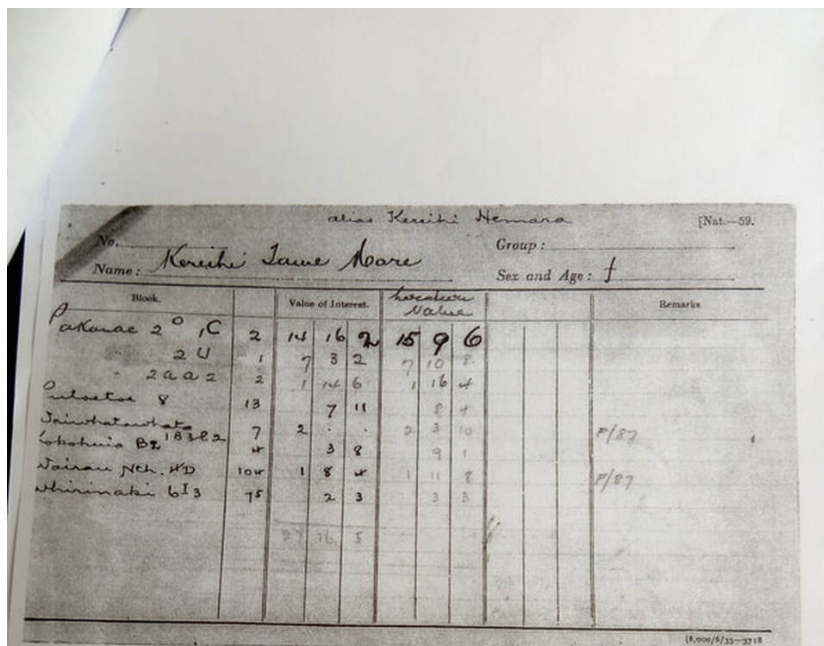 alias Kereihi Hemara
[Nat.—59.
No.
Group:
Name: Kereihi Tawe Mare
Sex and Age: f
Block.
Value of Interest.
Location Value
Remarks
Pakanae 2 O 1C 2 14 16 2 15 9 6
" 2U 1 7 3 2 7 10 8
" 2aa2 2 1 14 6 1 16 4
8 13 7 11 8 4
7 2 . . 2 3 10 F/87
Kokohuia 4 3 8 9 1
Wairau Nth. 4D 104 1 8 4 1 11 8 F/87
Whirinaki 6I3 75 2 3 3 3
27 16 5
[8,000/6/35—3718